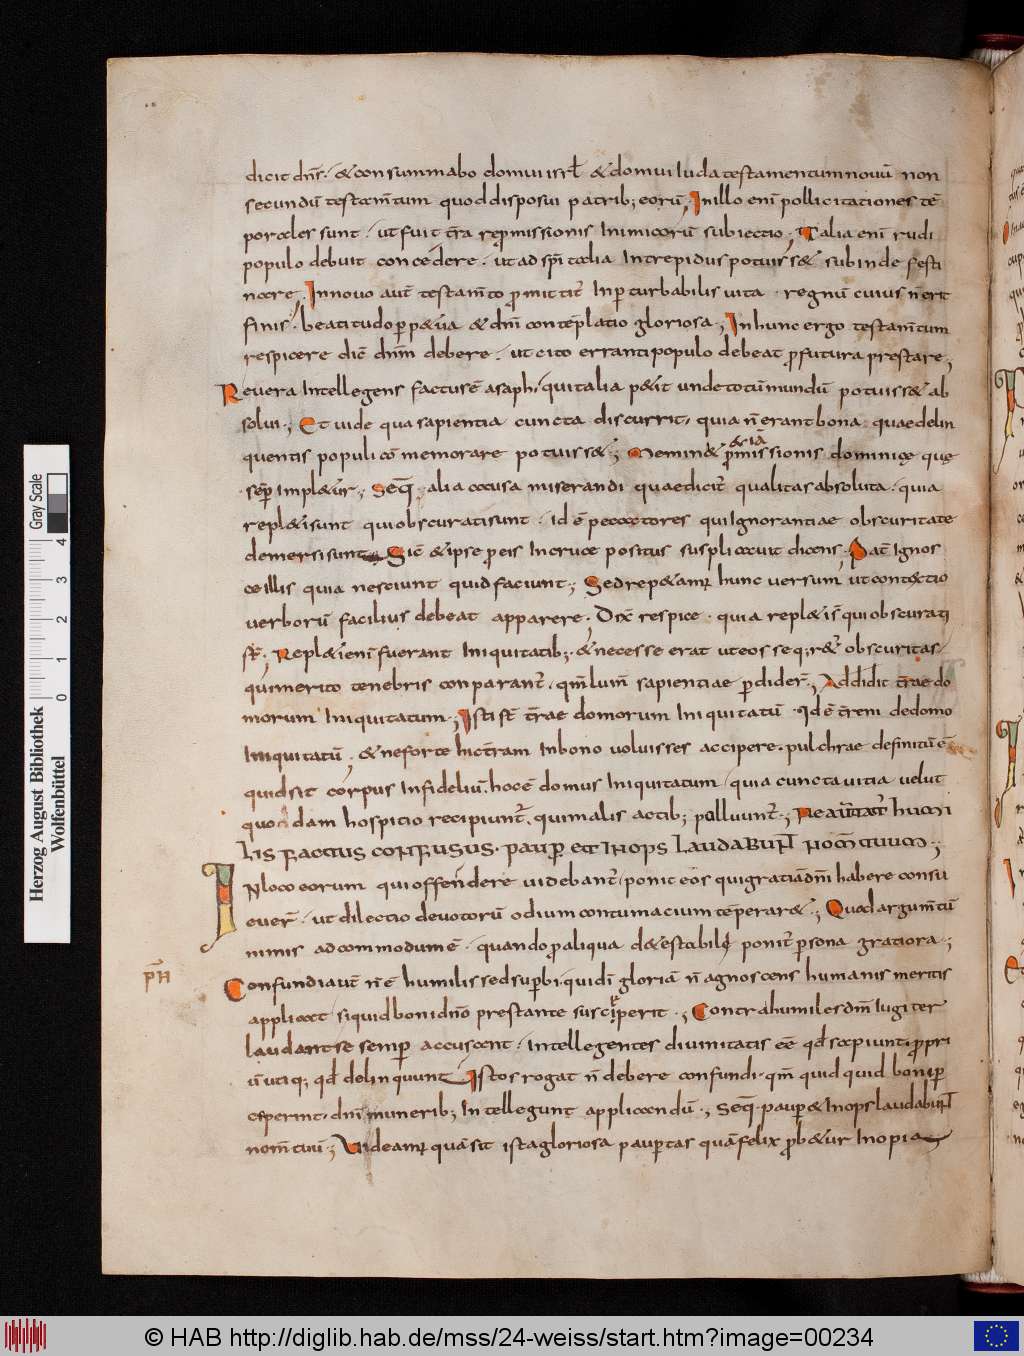 dicit dn̄s. & consummabo domui isrł & domui Iuda testamentum nouū non
secundū testam̄tum quod disposui patrib; eorū; In illo enī pollicitationes tē
porales sunt. ut fuit t̄ra rep̄missionis Inimicorū subiectio; Talia enī rudi
populo debuit concedere. ut ad sp̄i talia Intrepidus potuiss& subinde festi
nare. In nouo aut̄ testam̄to promittit̄ Inperturbabilis uita. regnū cuius n̄ erit
finis. beatitudo perp&ua & dn̄i contēplatio gloriosa; In hunc ergo testam̄tum
respicere dic̄ dn̄m debere. ut cito erranti populo debeat profutura prestare;
Reuera Intellegens factus ē asaph, qui talia p&iit unde totū mundū potuiss& ab
solui.; Et uide qua sapientia cuncta discurrit, quia n̄ erant bona quae delin
quentis populi cōmemorare potuiss&.; Memin& promissionis dominicę quę
& iā
semp̄ impl&ur.; Seq̄ alia causa miserandi quae dicit̄ qualitas absoluta. quia
repl&i sunt qui obscurati sunt. id ē peccatores qui Ignorantiae obscuritate
demersi sunt Sic̄ & ipse pro eis In cruce positus supplicauit dicens. Pat̄ Ignos
ce illis quia nesciunt quid faciunt.; Sed rep&amus hunc uersum ut contextio
uerborū facilius debeat apparere. Dix̄ respice. quia repl&i s̄ qui obscurati
st̄. Repl&i enī fuerant Iniquitatib;. & necesse erat ut eos seq;r&ur obscuritas.
qui merito tenebris conparant̄. qm̄ lum̄ sapientiae perdider̄.; Addidit t̄rae do
morum Iniquitatum.; Isti st̄ t̄rae domorum Iniquitatū. Id ē t̄reni de domo
Iniquitatū. & ne forte hic t̄ram In bono uoluisses accipere. pulchrae definitū ē
quid sit corpus Infideliū. hoc ē domus Iniquitatum. quia cuncta uitia uelut
quodam hospitio recipiunt̄. qui malis actib; polluunt̄.; Ne auertat̄ humi
lis factus confusus. pauper et inops laudabunt nom̄ tuum.;
In loco eorum qui offendere uidebant̄. ponit eos qui gratiā dn̄i habere consu
euer̄. ut dilectio deuotorū odium contumacium tēperar&.; Quod argum̄tū
nimis ad commodum ē. quando pro aliqua d&estabili ponit̄ persona gratiora.;
Confundi aut̄ n̄ ē humilis sed superbi. qui dn̄i gloriā n̄ agnoscens humanis meritis
applicat siquid boni dn̄o prestante susceperit.; Contra humiles dn̄m Iugiter
laudant se semper accusant. Intellegentes diuinitatis eē qd̄ sapiunt. propri
ū utiq; qd̄ delinquunt Istos rogat n̄ debere confundi. qm̄ quidquid boni per
ceperint. dn̄i munerib; Intellegunt applicandū.; Seq̄. pauper & Inops laudabunt
nom̄ tuū.; Videamus quā sit ista gloriosa paupertas quā felix prob&ur Inopia
Herzog August Bibliothek
Wolfenbüttel
0 1 2 3 4
Gray Scale
© HAB http://diglib.hab.de/mss/24-weiss/start.htm?image=00234